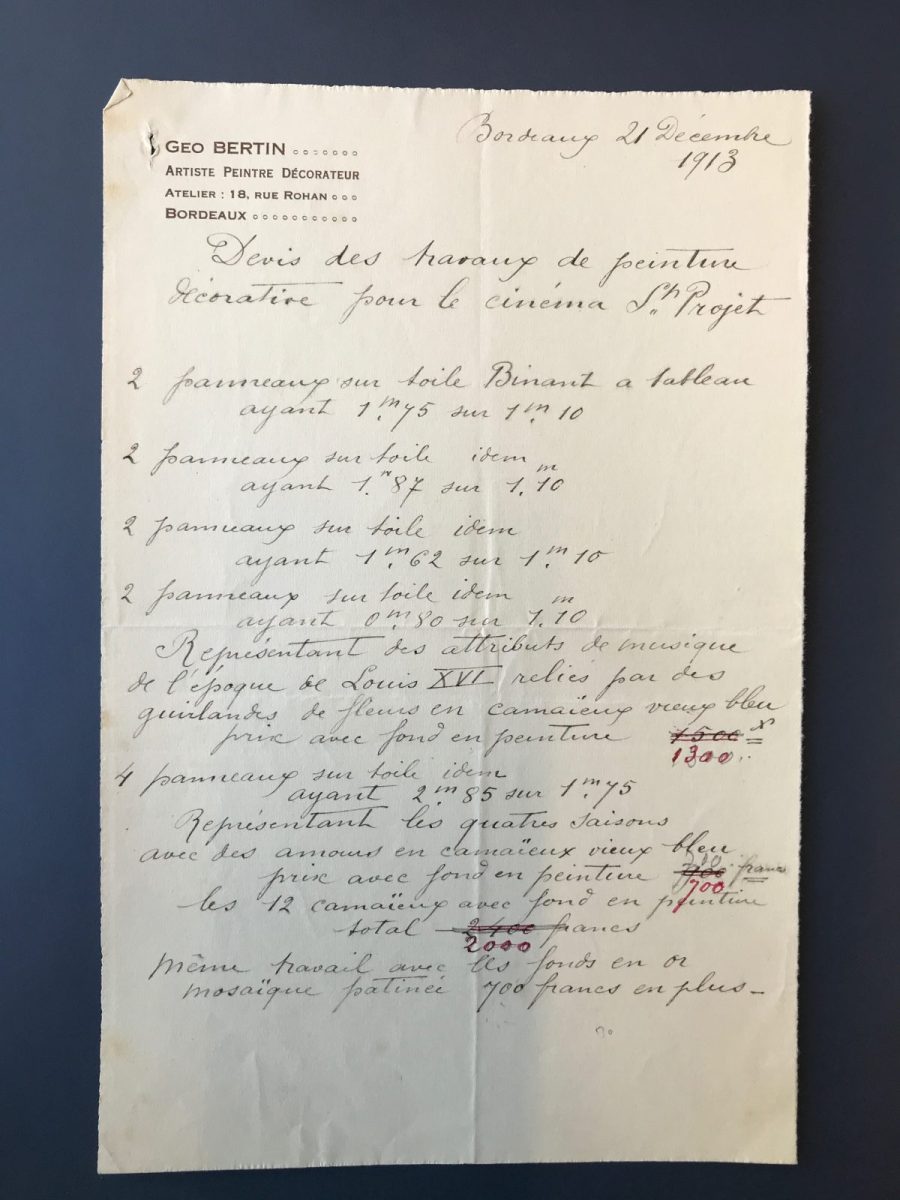 GEO BERTIN
ARTISTE PEINTRE DÉCORATEUR
ATELIER : 18, RUE ROHAN
BORDEAUX
Bordeaux 21 Décembre
1913
Devis des travaux de peinture
décorative pour le cinéma St Projet
2 panneaux sur toile Binant a tableau
ayant 1m75 sur 1m10
2 panneaux sur toile idem
ayant 1m87 sur 1m10
2 panneaux sur toile idem
ayant 1m62 sur 1m10
2 panneaux sur toile idem
ayant 0m80 sur 1m10
Représentant des attributs de musique
de l'époque de Louis XVI reliés par des
guirlandes de fleurs en camaïeux vieux bleu
prix avec fond en peinture 1500
1300
4 panneaux sur toile idem
ayant 2m85 sur 1m75
Représentant les quatres saisons
avec des amours en camaïeux vieux bleu
prix avec fond en peinture 900 francs
700
les 12 camaïeux avec fond en peinture
total 2400 francs
2000
même travail avec les fonds en or
mosaïque patinée 700 francs en plus_